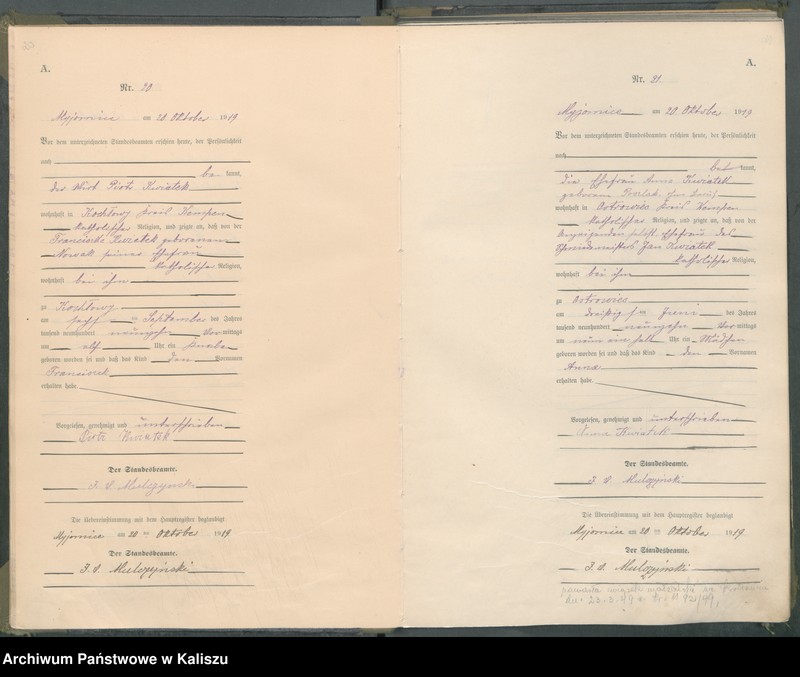 A.
Nr. 20
Myjomice am 20 Oktober 1919
Vor dem unterzeichneten Standesbeamten erschien heute, der Persönlichkeit
nach
be kannt,
der Wirt Piotr Kwiatek
wohnhaft in Kochlowy Kreis Kempen
katholischer Religion, und zeigte an, daß von der
Franciszka Kwiatek geborenen
Nowak seiner Ehefrau
katholischer Religion,
wohnhaft bei ihm
zu Kochlowy
am September des Jahres
tausend neunhundert neunzehn Vor mittags
um elf Uhr ein Knabe
geboren worden sei und daß das Kind den Vornamen
Franciszek
erhalten habe.
Vorgelesen, genehmigt und unterschrieben
Piotr Kwiatek
Der Standesbeamte.
Die Uebereinstimmung mit dem Hauptregister beglaubigt
Myjomice am 20 ten Oktober 1919
Der Standesbeamte.
A.
Nr. 21
Myjomice am 20. Oktober 1919
Vor dem unterzeichneten Standesbeamten erschien heute, der Persönlichkeit
nach
be kannt,
die Ehefrau Anna Kwiatek
geborene
wohnhaft in Ostrowiec Kreis Kempen
katholischer Religion, und zeigte an, daß von der
Anzeigenden selbst Ehefrau des
Jan Kwiatek
katholischer Religion,
wohnhaft bei ihm
zu Ostrowiec
am Juni des Jahres
tausend neunhundert neunzehn Vor mittags
um neun ein halb Uhr ein Mädchen
geboren worden sei und daß das Kind den Vornamen
Anna
erhalten habe.
Vorgelesen, genehmigt und unterschrieben
Anna Kwiatek
Der Standesbeamte.
Die Uebereinstimmung mit dem Hauptregister beglaubigt
Myjomice am 20 ten Oktober 1919
Der Standesbeamte.
Archiwum Państwowe w Kaliszu